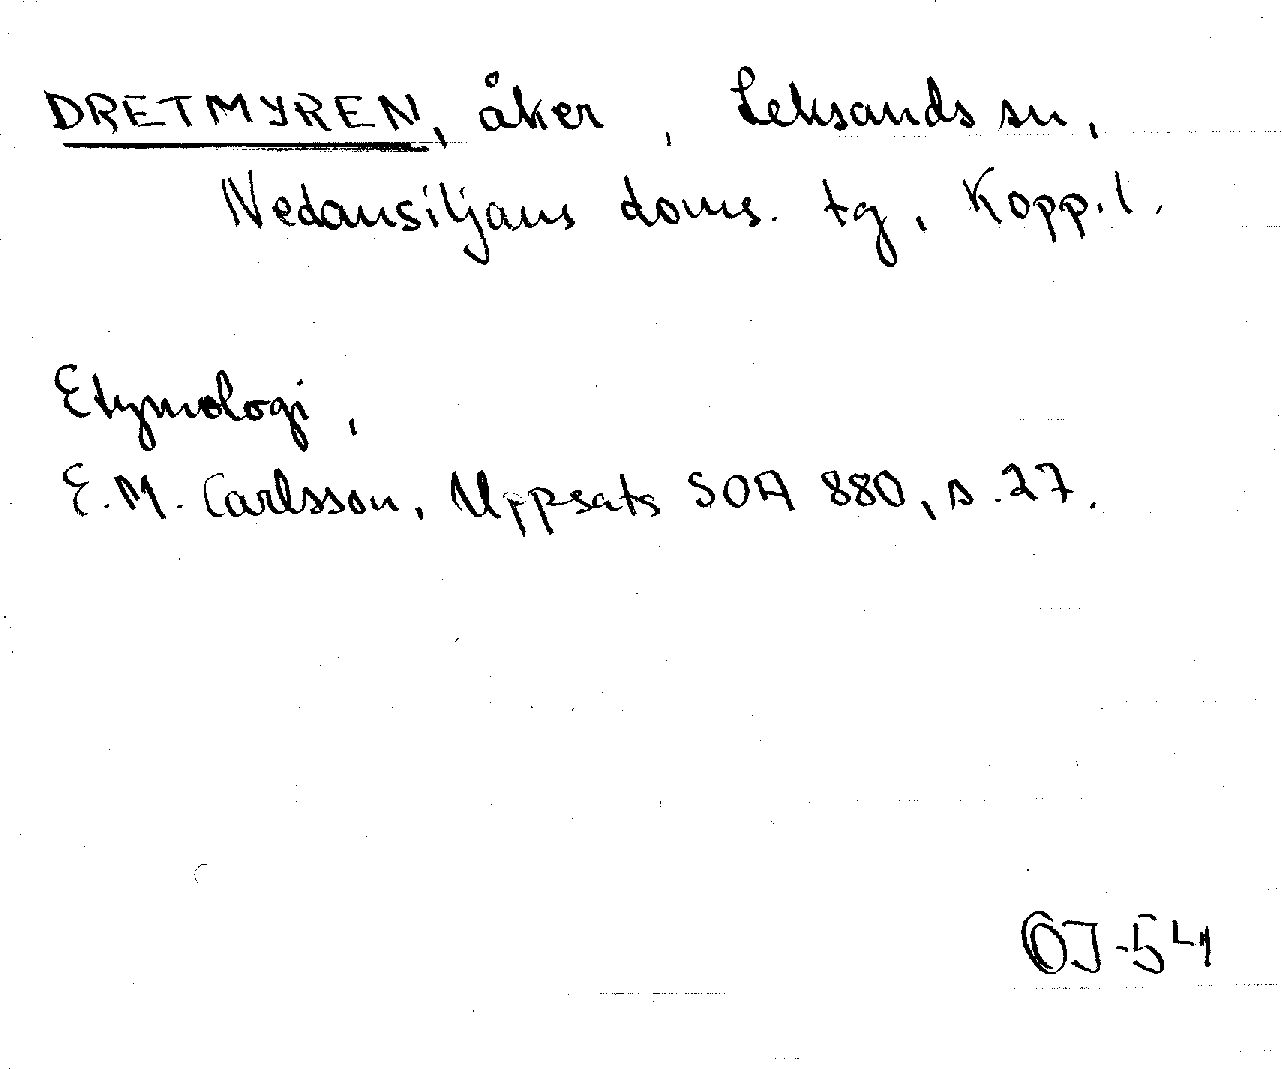 DRETMYREN, åker, Leksands sn,
Nedansiljans doms. tg, Kopp.l.
Etymologi,
E.M. Carlsson, Uppsats SOA 880, s.27.
OJ-54